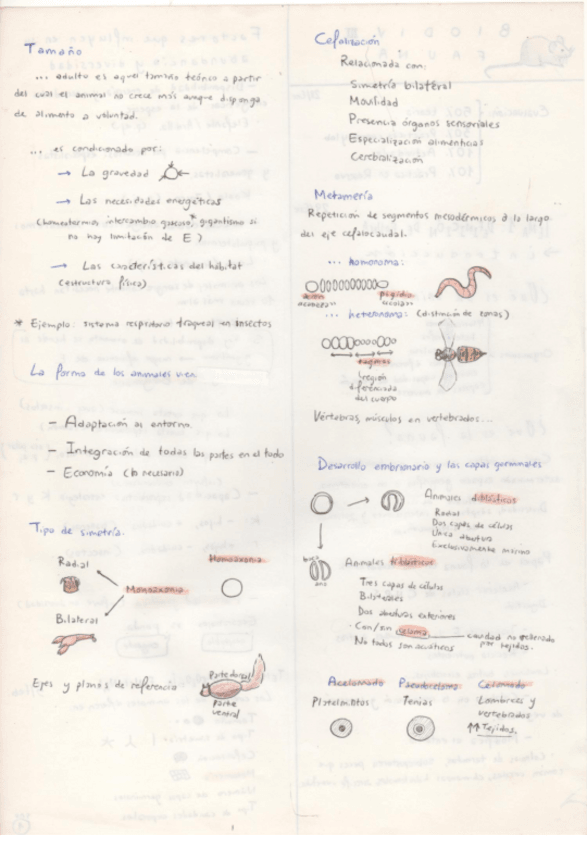 Tamaño
... adulto es aquel tamaño teórico a partir
del cual el animal no crece más aunque disponga
de alimento a voluntad.
... es condicionado por:
→ La gravedad
→ Las necesidades energéticas
(homeotermos intercambio gaseoso, gigantismo si
no hay limitación de E)
→ Las características del hábitat
(estructura física)
* Ejemplo: sistema respiratorio traqueal en insectos
La forma de los animales vien
- Adaptación al entorno.
- Integración de todas las partes en el todo
- Economía (lo necesario)
Tipo de simetría.
Radial
Homoaxonia
Monoaxonia
Bilateral
Ejes y planos de referencia
Parte dorsal
Parte
ventral
Cefalización
Relacionada con:
Simetría bilateral
Movilidad
Presencia órganos sensoriales
Especialización alimenticia
Cerebralización
Metamería
Repetición de segmentos mesodérmicos a lo largo
del eje cefalocaudal.
... homonoma:
pigidio
... heteronoma: (distinción de zonas)
tagmas
región
diferenciada
del cuerpo
Vértebras, músculos en vertebrados...
Desarrollo embrionario y las capas germinales
Animales diblásticos
Radial
Dos capas de células
Única abertura
Exclusivamente marino
boca
ano
Animales triblásticos
Tres capas de células
Bilaterales
Dos aberturas exteriores
- Con/sin celoma
cavidad no rellenado
por tejidos.
No todos son acuáticos
Acelomado Pseudocelomo Celomado
Platelmintos Tenias Lombrices y
vertebrados
↑↑ Tejidos.